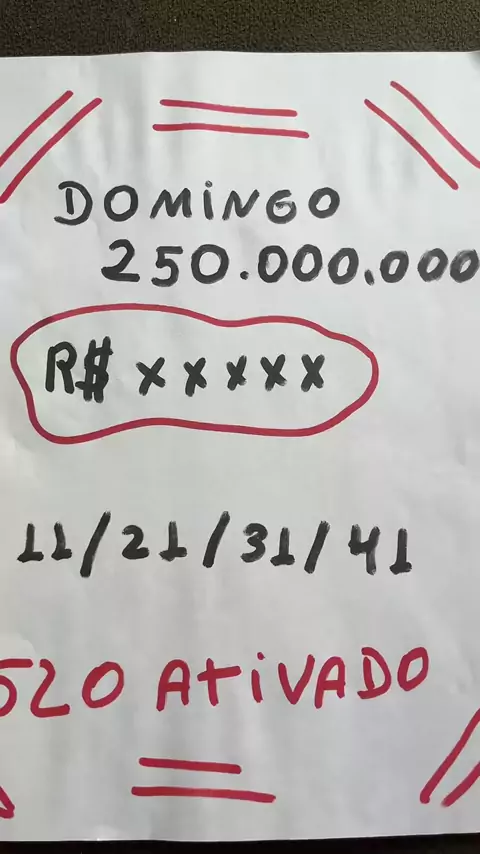 DOMiNGO
250.000.000
R$ xxxxx
11/21/31/41
520 AtiVADO